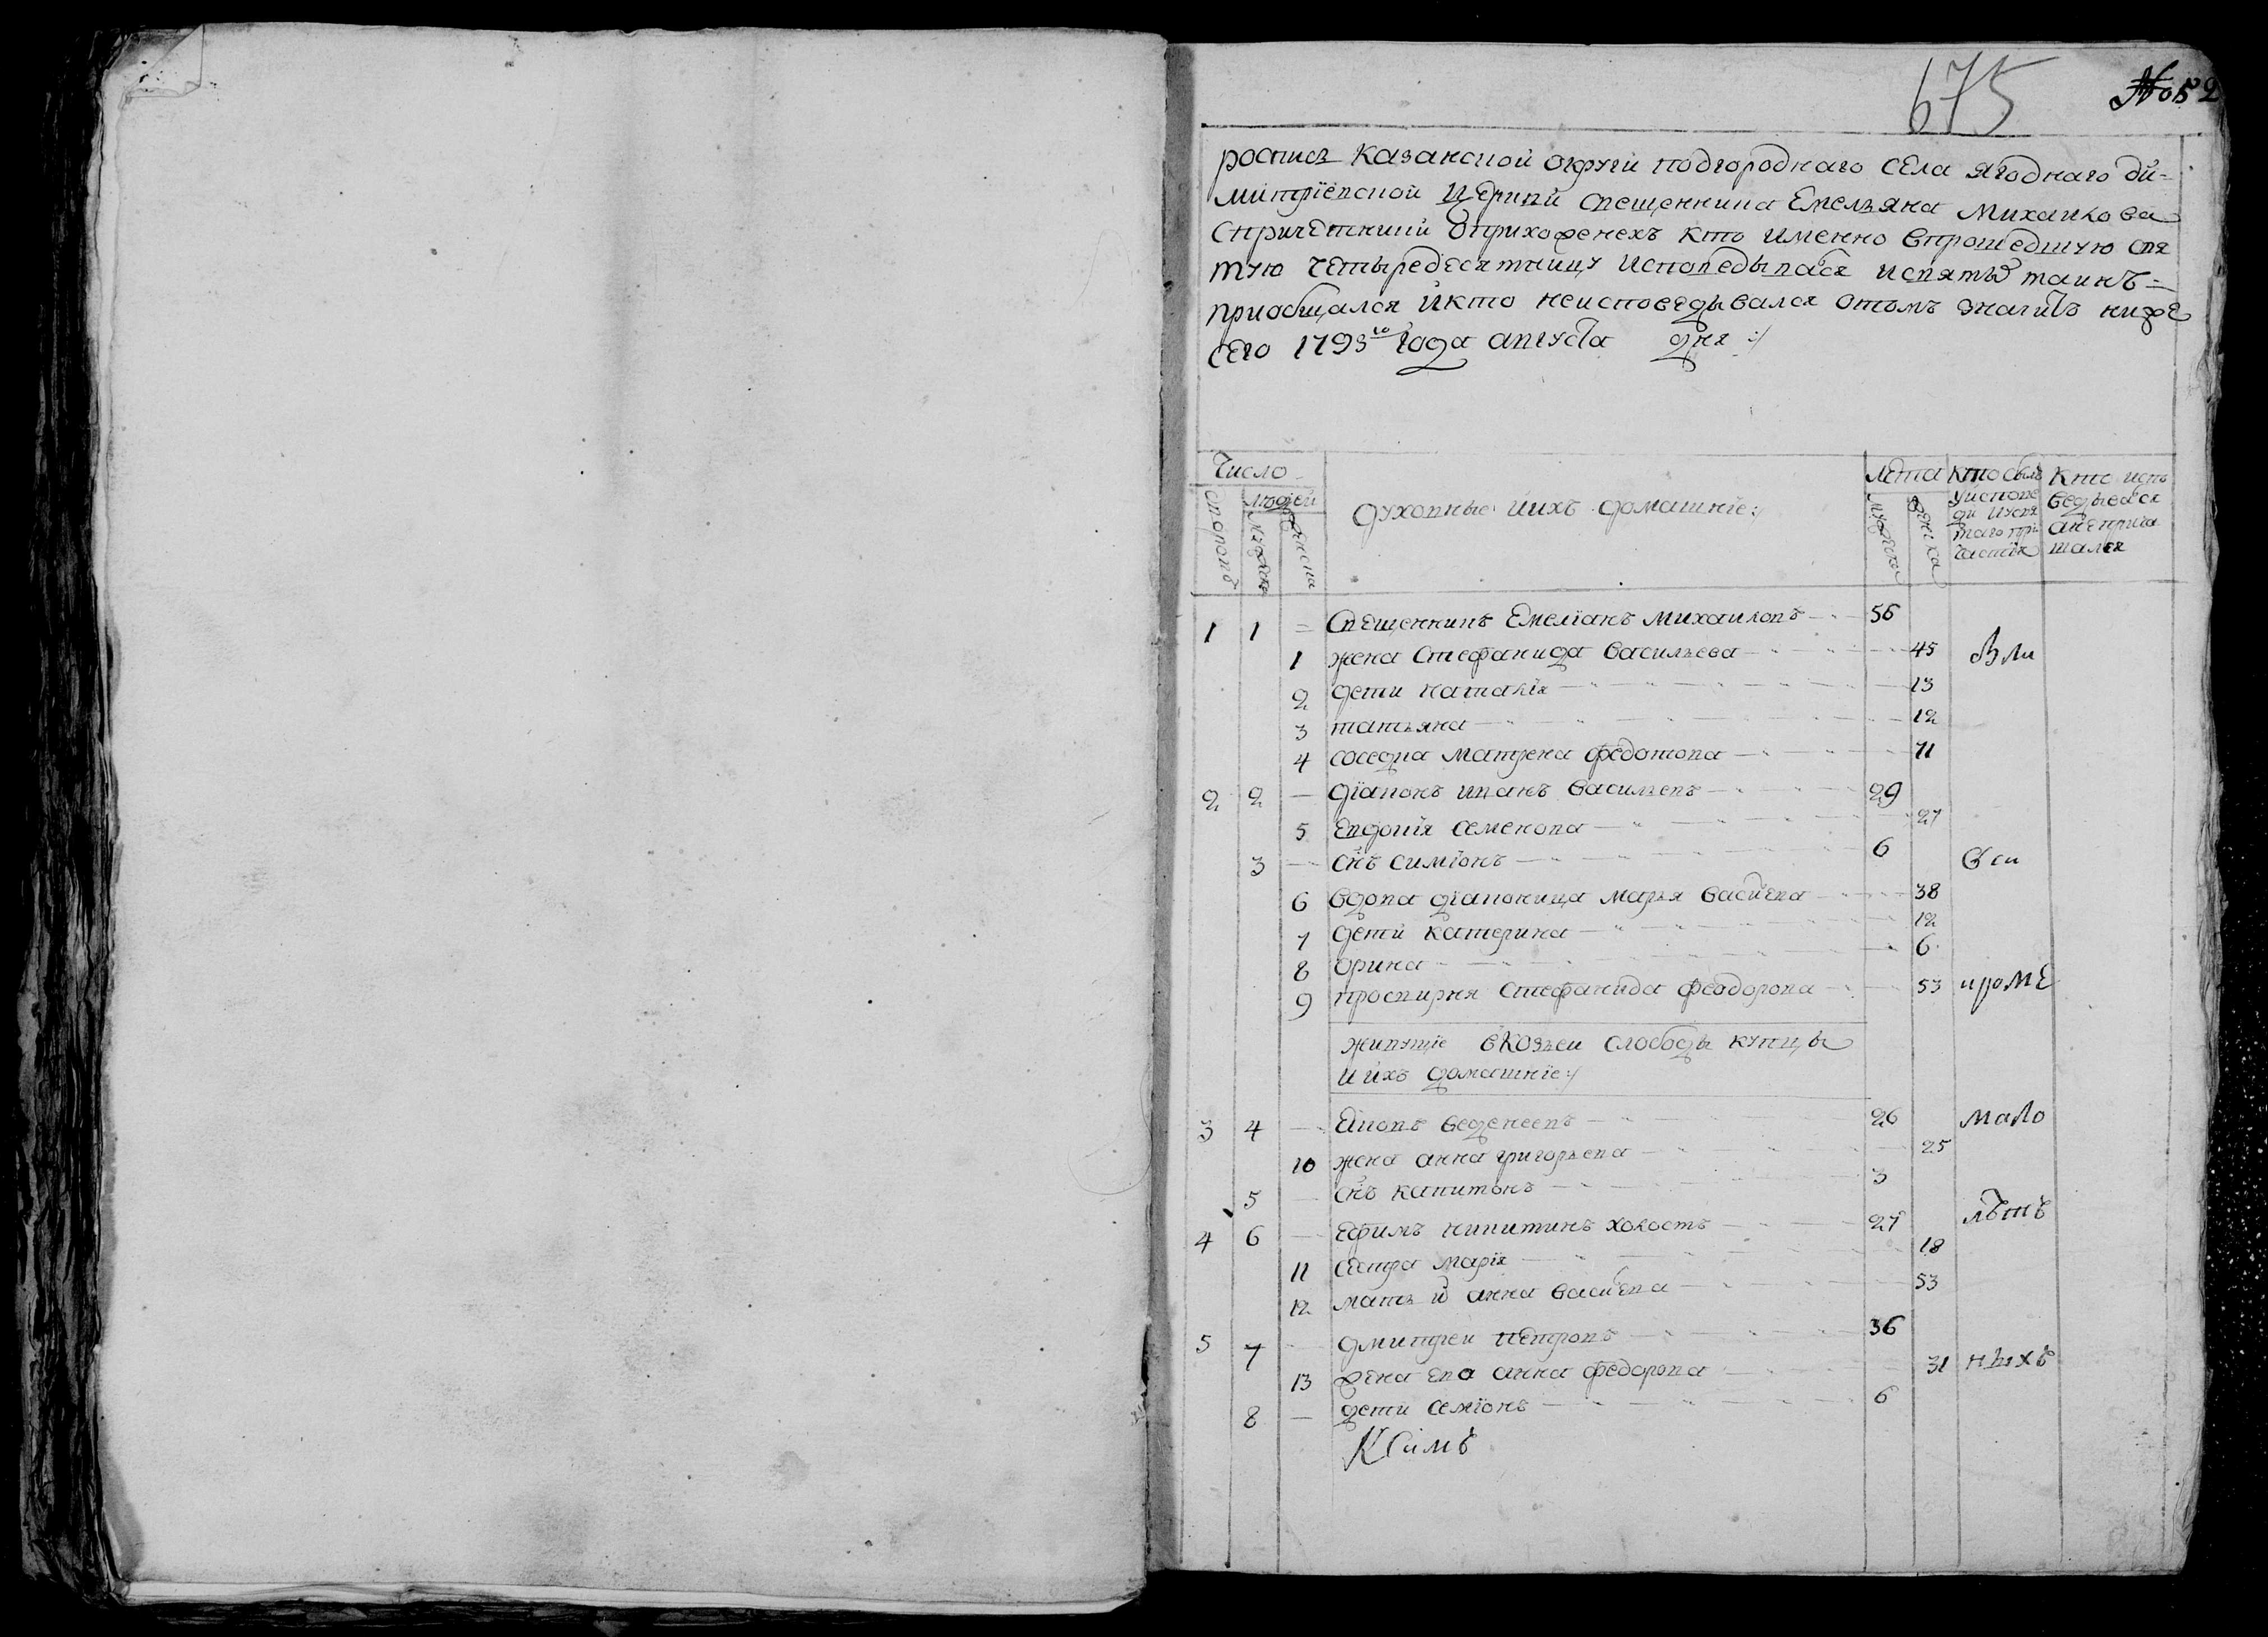 675
№ 52
роспись казанской округи подгороднаго села ягоднаго ди=
митрїевской церкви священника Емельяна михаилова
спричетники о прихоженехъ кто именно впрошедшую свя
тую четыредесятницу исповедывался и святыхъ таинъ=
приобщался икто неисповедывался отомъ значитъ ниже
сего 1793го года августа дня :/
Число
людей
дворовъ
мужеска
женска
духовные иихъ домашнїе:/
лета
мужеска
женска
кто былъ
уиспове
ди исвя
таго при
частїя
кто испо
ведывался
анеприча
щался
1 1 = Священникъ Емелїанъ михаиловъ 56
1 жена Стефанида васильева 45 вли
2 дети наталїя 13
3 татьяна 12
4 соседка матрена федотова 71
2 2 — дїаконъ иванъ васильевъ 29
5 Евдокия семенова 27
3 — снъ симїонъ 6 вси
6 вдова дїаконица марья васильева 38
7 дети катерина 12
8 орина 6
9 просвирня Стефанида феодорова 53 кроме
живущїе вкозьеи слободы купцы
и ихъ домашнїе:/
3 4 — Яковъ веденеевъ 26 мало
10 жена анна григорьева 25
5 — снъ капитонъ 3
4 6 — ефимъ никитинъ холостъ 27 лѣтн
11 сестра марїя 18
12 мать их анна васильева 53
5 7 — дмитреи петровъ 36
13 жена ево анна федорова 31 ныхъ
8 — дети семїонъ 6
К симъ